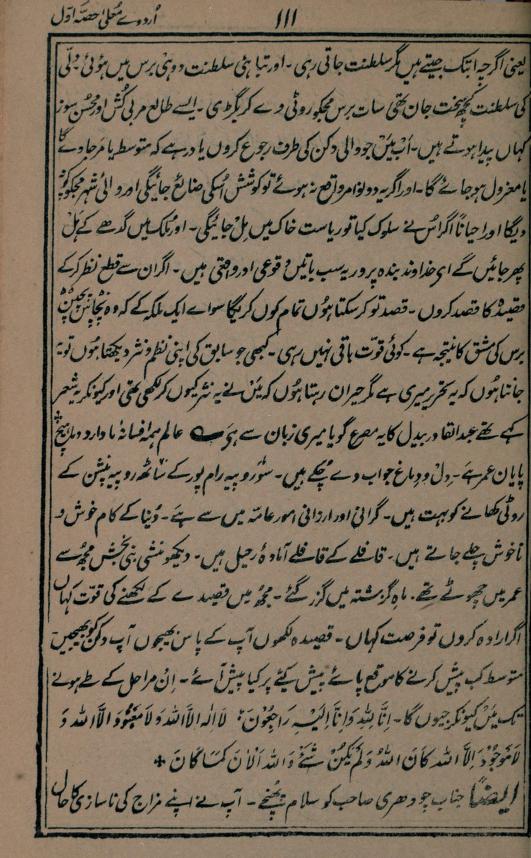 اُردوے معلیٰ حصّہ اوّل
۱۱۱
یعنی اگرچہ ابتک جیتے ہیں مگر سلطنت جاتی رہی۔ اور تباہئی سلطنت دو ہی برس میں ہوئی۔ دلّی
کی سلطنت کچھ سخت جان تھی سات برس مجکو روٹی دے کر بگڑی۔ ایسے طالع مربی کُش اور محسن سوز
کہاں پیدا ہوتے ہیں۔ اب میں جو والی دکن کی طرف رجوع کروں یاد رہے کہ متوسط یا مر جاوے گا
یا معزول ہو جائے گا۔ اور اگر یہ دونو امر واقع نہ ہوئے تو کوشش اُسکی ضائع جائیگی اور والئی شہر مجکو کچھ نہ
دیگا اور احیاناً اگر اُس نے سلوک کیا تو ریاست خاک میں مل جائیگی۔ اور مُلک میں گدھے کے ہل
پھر جائیں گے ای خداوند بندہ پرور یہ سب باتیں وقوعی اور واقعی ہیں۔ اگر ان سے قطع نظر کرکے
قصیدہ کا قصد کروں۔ قصد تو کر سکتا ہوں تمام کون کریگا سواے ایک ملکہ کے کہ وہ پچاس پچپن
برس کی مشق کا نتیجہ ہے۔ کوئی قوّت باقی نہیں رہی۔ کبھی جو سابق کی اپنی نظم و نثر دیکھتا ہوں تو یہ
جانتا ہوں کہ یہ تحریر میری ہے مگر حیران رہتا ہوں کہ میں نے یہ نثر کیوں کر لکھی تھی اور کیونکر یہ شعر
کہے تھے عبدالقادر بیدل کا یہ مصرع گویا میری زبان سے ہے ؎ عالم ہمہ افسانۂ ما دارد و ما ہیچ
پایان عمر ہے۔ دل و دماغ جواب دے چکے ہیں۔ سَو روپیہ رام پور کے ساٹھ روپیہ پنشن کے
روٹی کھانے کو بہت ہیں۔ گرانی اور ارزانی امور عامّہ میں سے ہے۔ دُنیا کے کام خوش و
ناخوش چلے جاتے ہیں۔ قافلے کے قافلے آمادۂ رحیل ہیں۔ دیکھو منشی نبی بخش مجھ سے
عمر میں چھوٹے تھے۔ ماہ گزشتہ میں گزر گئے۔ مجھ میں قصیدے کے لکھنے کی قوّت کہاں
اگر ارادہ کروں تو فرصت کہاں۔ قصیدہ لکھوں آپ کے پاس بھیجوں آپ دکن کو بھیجیں
متوسط کب پیش کرنے کا موقع پائے پیش کیئے پر کیا پیش آئے۔ ان مراحل کے طے ہونے
تک میں کیونکر جیوں گا۔ اِنَّا لِلّٰہِ وَاِنَّا اِلَیْہِ رَاجِعُوْنَ لَا اِلٰہَ اِلَّا اللہ وَلَا مَعْبُوْدَ اِلَّا اللہ وَ
لَا مَوْجُوْدَ اِلَّا اللہ کَانَ اللہُ وَلَمْ یَکُنْ شَیْءٌ وَاللہُ الْاٰنَ کَمَا کَانَ +
ایضاً جناب چودھری صاحب کو سلام پہنچے۔ آپ نے اپنے مزاج کی ناسازی کا حال